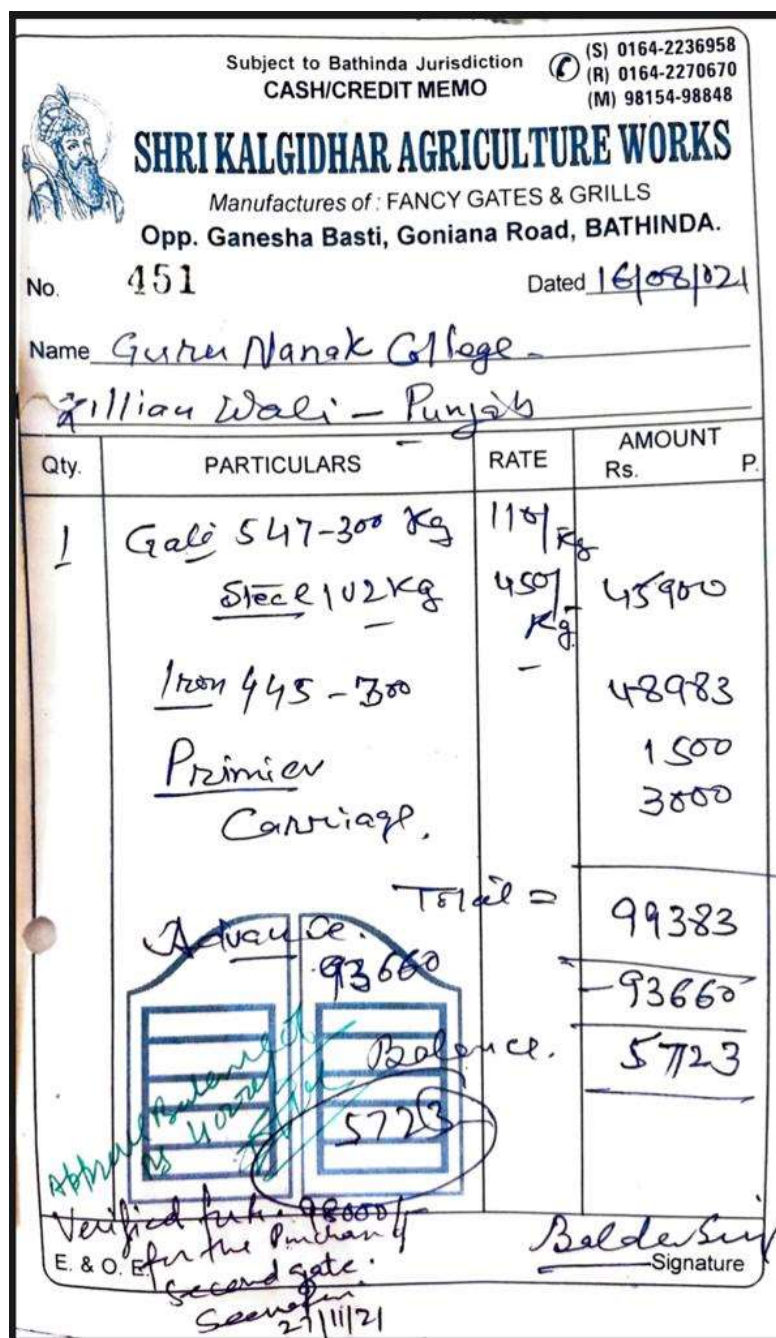 Subject to Bathinda Jurisdiction
CASH/CREDIT MEMO
(S) 0164-2236958
(R) 0164-2270670
(M) 98154-98848
SHRI KALGIDHAR AGRICULTURE WORKS
Manufactures of : FANCY GATES & GRILLS
Opp. Ganesha Basti, Goniana Road, BATHINDA.
No. 451 Dated 16/08/021
Name Guru Nanak College -
Killian Wali - Punjab
Qty. PARTICULARS RATE AMOUNT
Rs. P.
1 Gate 547-300 Kg 110/Kg
Steel 102 Kg 450/Kg 45900
Iron 445-300 48983
Primier 1500
Carriage. 3000
Total = 99383
Advance.
93660 -93660
Balance. 5723
5723
Verified for Rs. 98000/-
for the Purchase of
second gate.
27/11/21
E. & O. E. Signature